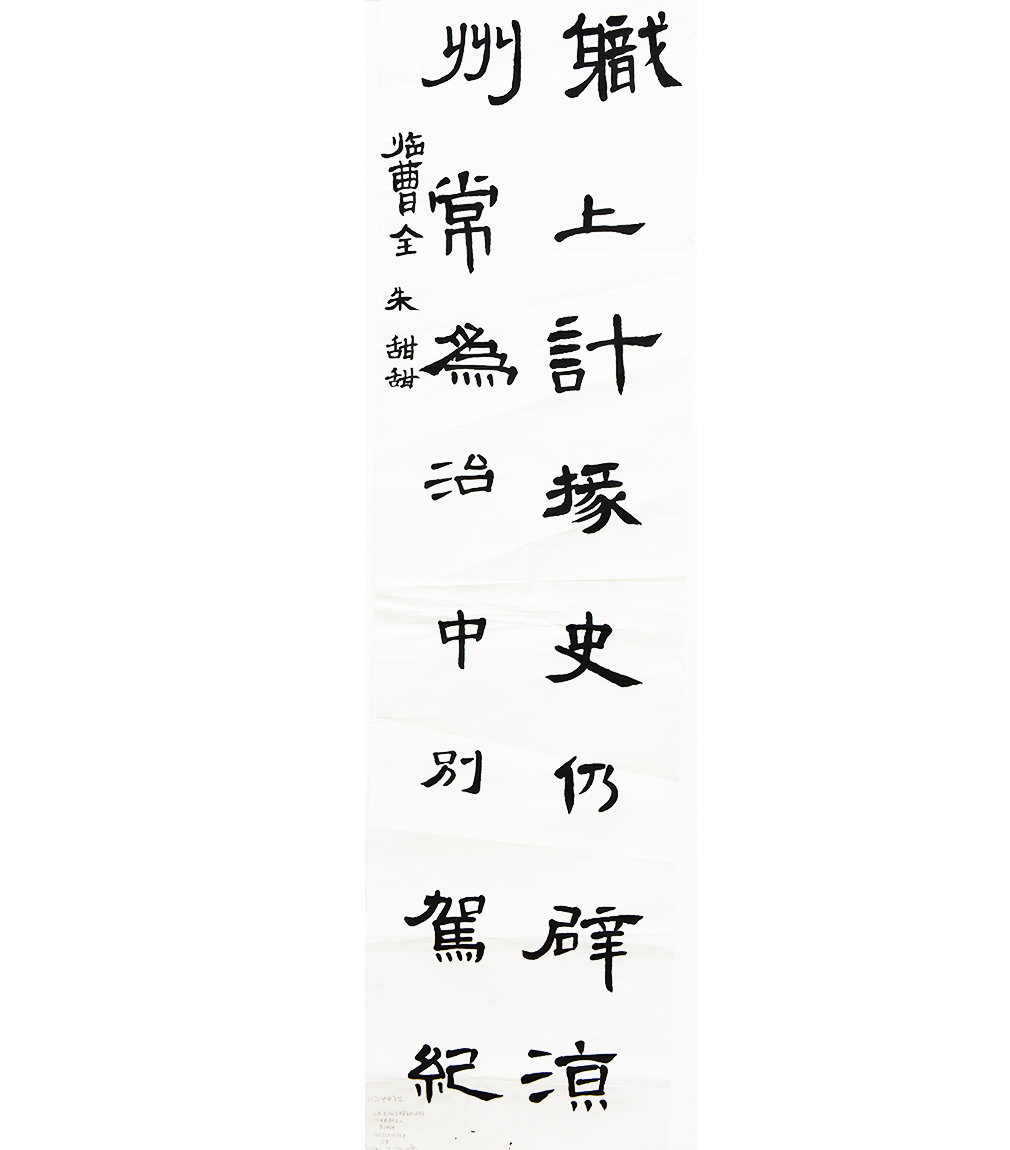 職上計掾史仍辟涼
州常為治中別駕紀
临曹全 朱甜甜